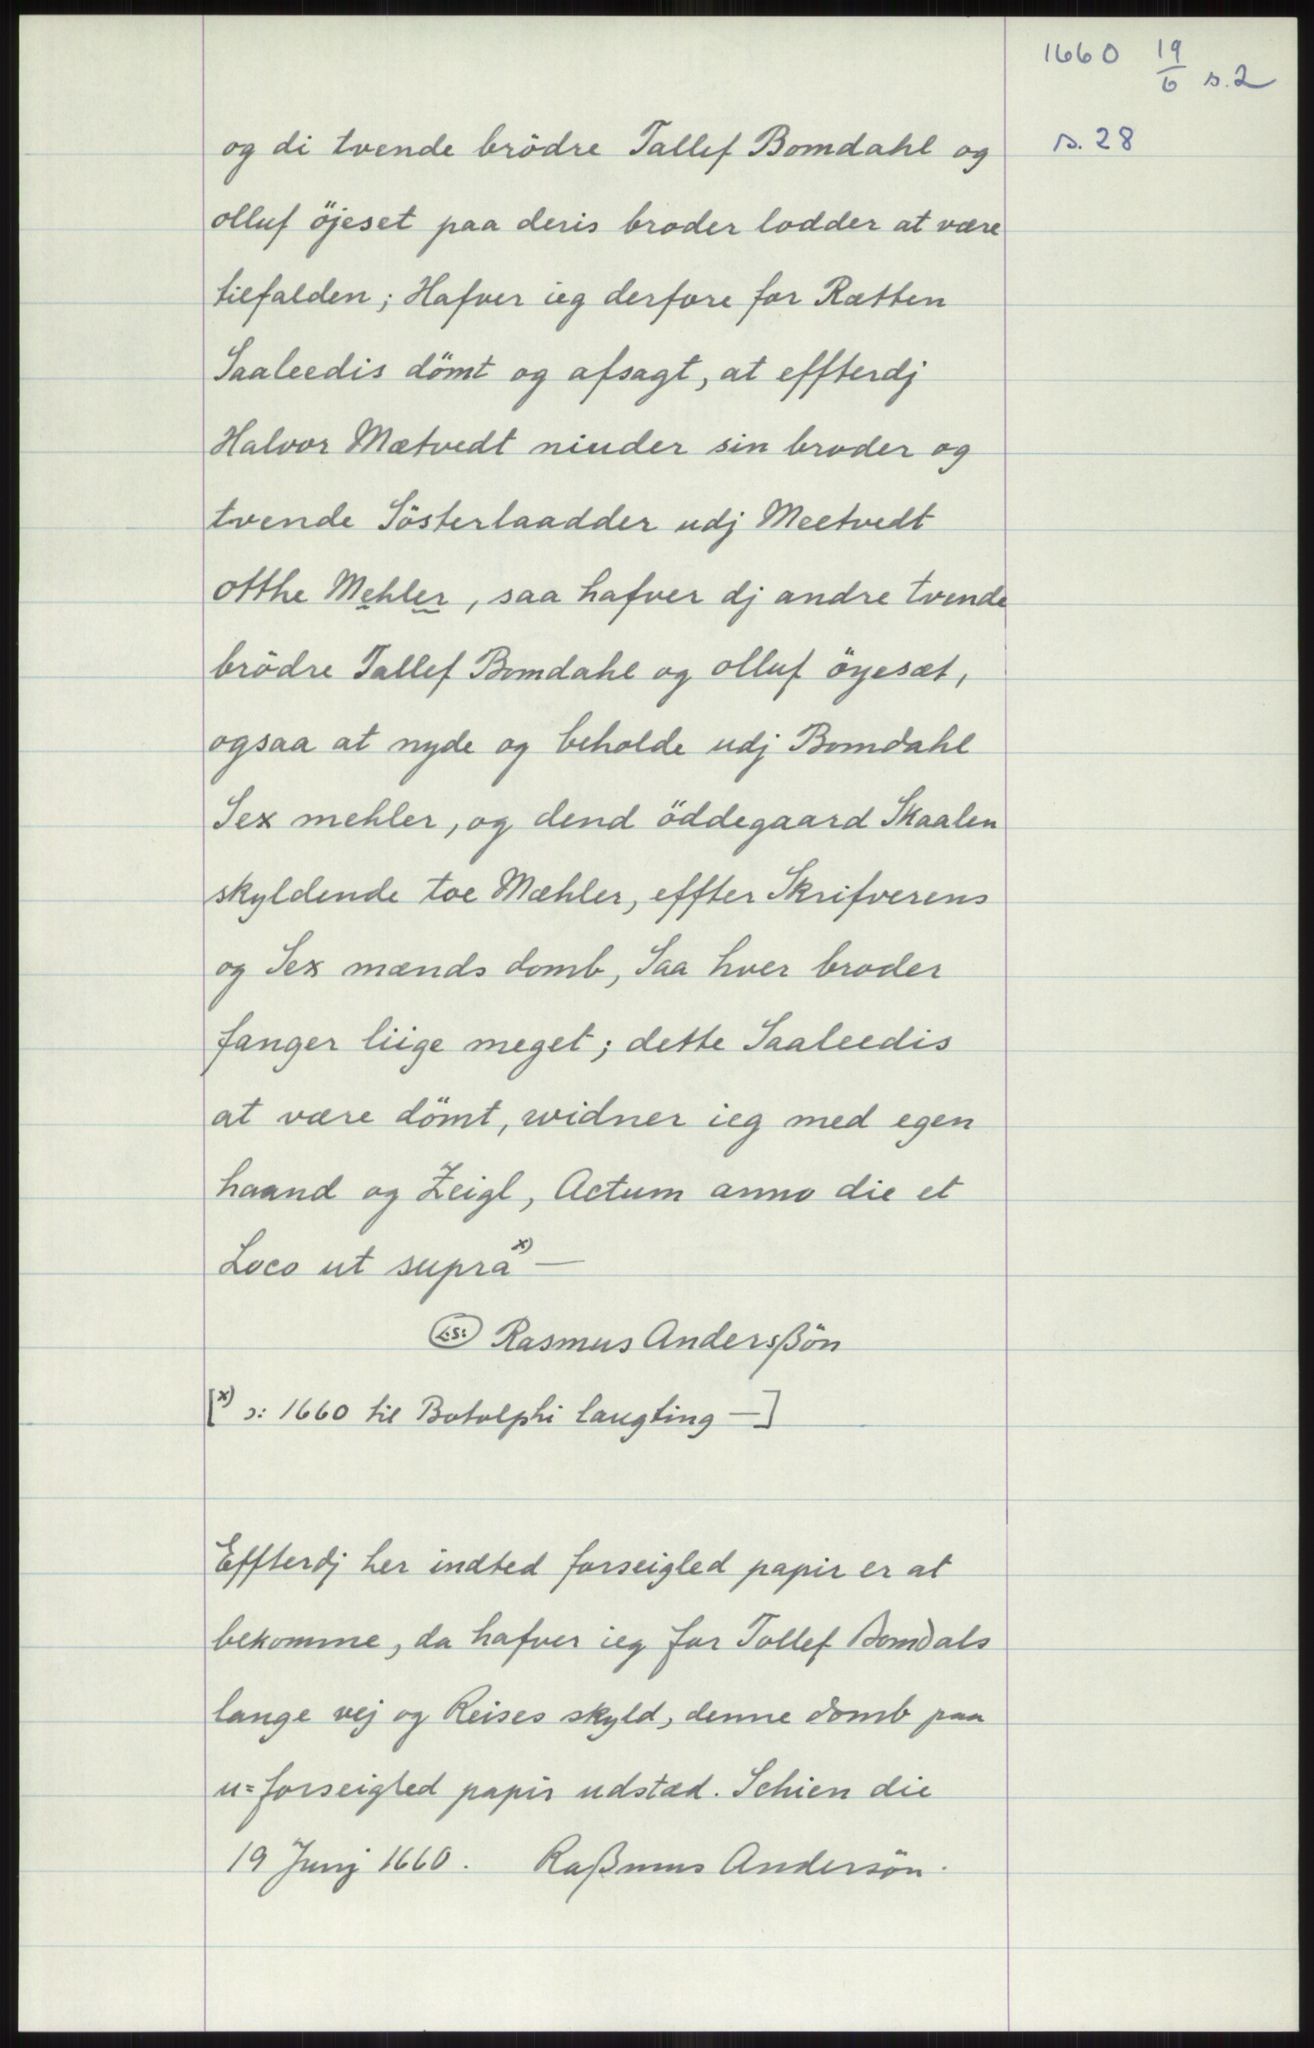 1660 19/6 s. 2
s. 28
og di tvende brödre Tallef Bomdahl og
olluf öjeset paa deris broder lodder at være
tilfalden; Hafver ieg derfore for Rætten
Saaleedis dömt og afsagt, at effterdj
Halvor Mætvedt niuder sin broder og
tvende Sösterlaadder udj Meetvedt
otthe Mehler, saa hafver dj andre tvende
brödre Tallef Bomdahl og olluf öyesæt,
ogsaa at nyde og beholde udj Bomdahl
Sex mehler, og dend öddegaard Skaalen
skyldende toe Mæhler, effter Skrifverens
og Sex mænds domb, Saa hver broder
fanger liige meget; dette Saaleedis
at være dömt, widner ieg med egen
haand og Zeigl, Actum anno die et
Loco ut supra x) —
L:S: Rasmus Andersßön
[x) ɔ: 1660 til Botolphi laugting —]
Effterdj her indted forseigled papir er at
bekomme, da hafver ieg for Tollef Bomdals
lange vej og Reises skyld, denne domb paa
u=forseigled papir udstæd. Schien die
19 Junj 1660. Raßmus Andersön.